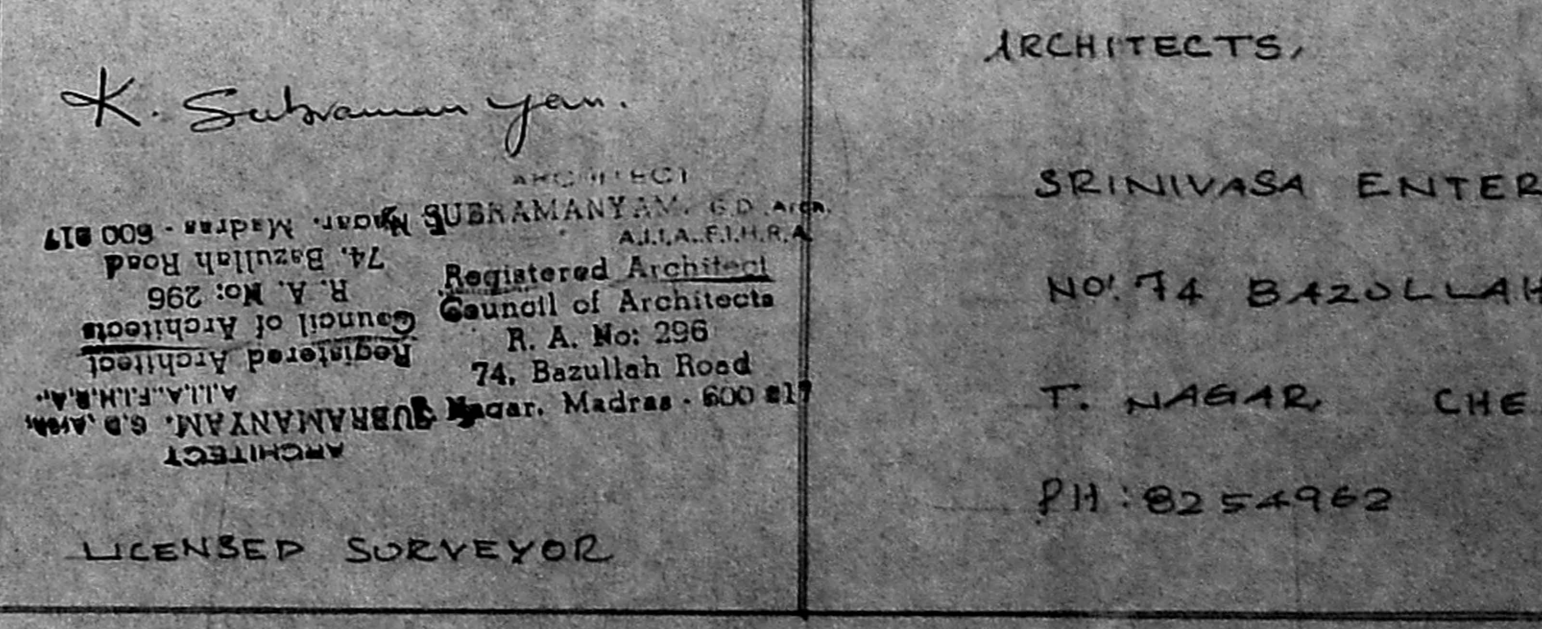 K. Subramanyan.
ARCHITECT
SUBRAMANYAM. G.D. Arch.
A.I.I.A., F.I.H.R.A.
Registered Architect
Council of Architects
R. A. No: 296
74, Bazullah Road
Nagar, Madras - 600 017
ARCHITECT
SUBRAMANYAM. G.D. Arch.
A.I.I.A., F.I.H.R.A.
Registered Architect
Council of Architects
R. A. No: 296
74, Bazullah Road
Nagar, Madras - 600 017
LICENSED SURVEYOR
ARCHITECTS,
SRINIVASA ENTER
NO: 74 BAZULLAH
T. NAGAR, CHE
PH : 8254962